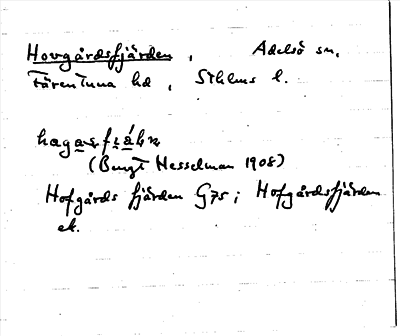 Hovgårdsfjärden, Adelsö sn.
Färentuna hd, Sthlms l.
(Bengt Hesselman 1908)
Hofgårds fjärden G75; Hofgårdsfjärden
ek.